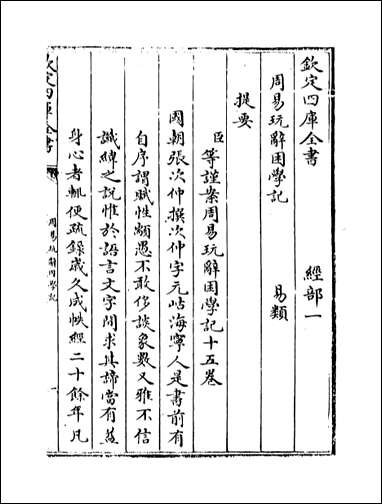 欽定四庫全書　經部一
周易玩辭困學記　易類
提要
臣等謹案周易玩辭困學記十五卷
國朝張次仲撰次仲字元岵海寧人是書前有
自序謂賦性顓愚不敢侈談象數又雅不信
讖緯之説惟於語言文字間求其諦當有益
身心者輒便疏録歲久成帙經二十餘年凡
欽定四庫全書
周易玩辭困學記
一